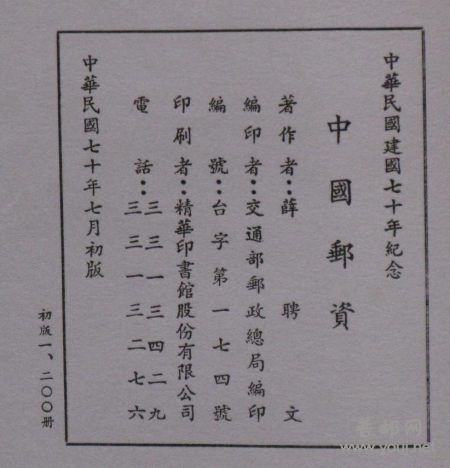 中華民國建國七十年紀念
中國郵資
著作者：薛聘文
編印者：交通部郵政總局編印
編號：台字第一七四號
印刷者：精華印書館股份有限公司
電話：三三一三四二九
三三一三二七六
中華民國七十年七月初版
初版一、二〇〇冊